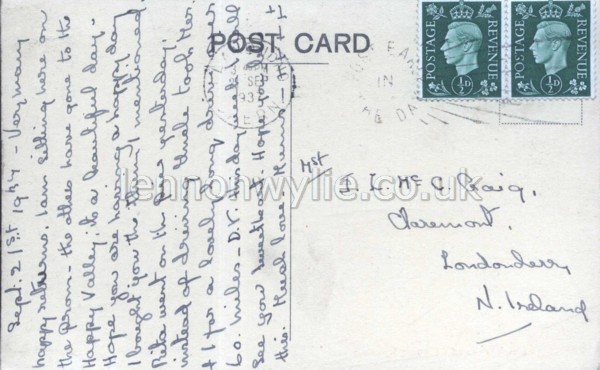 POST CARD
POSTAGE REVENUE
½D
POSTAGE REVENUE
½D
Sept. 21st 1937 - Very many
happy returns. I am sitting here on
the prom - the others have gone to the
Happy Valley, its a beautiful day -
Hope you are having a happy day
I bought you the thing I mentioned.
Rita went on the pier yesterday,
instead of driving Uncle took Her.
+ I for a lovely long drive, over
60. miles - D.V. Tuesday week I'll
See you sweetheart. Hope you'll
this. Much love Mums.
Mst
I. L. Mc C. Craig,
Claremont,
Londonderry
N. Ireland
lennonwylie.co.uk